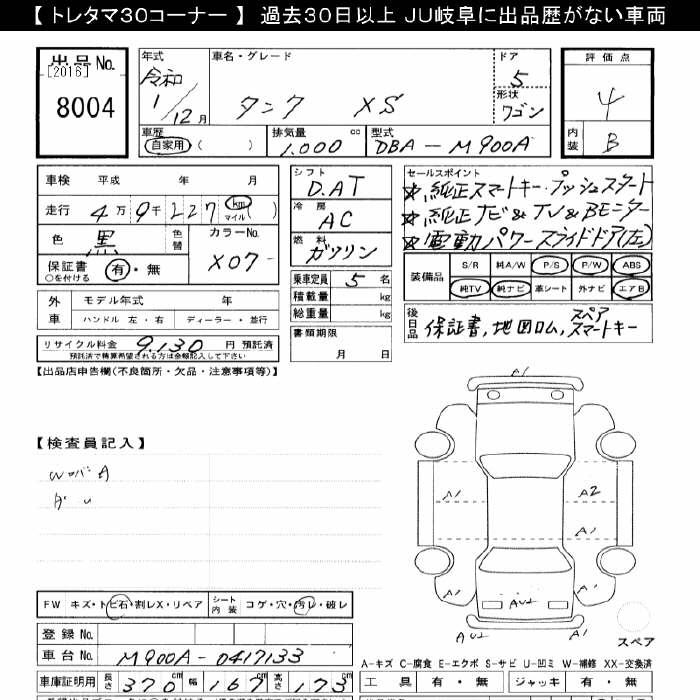 【 トレタマ30コーナー 】 過去30日以上 JU岐阜に出品歴がない車両
出品No.
[2016]
8004
年式
令和
1/12月
車名・グレード
タンク XS
ドア
5
形状
ワゴン
車歴
自家用 ( )
排気量
1.000 cc
型式
DBA-M900A
評価点
4
内装
B
車検 平成 年 月
走行 4万9千227 km マイル ( )
色 黒 色替
カラーNo.
X07
保証書 有・無
○を付ける
外車
モデル年式 年
ハンドル 左・右 ディーラー・並行
リサイクル料金 9,130 円 預託済
預託済で精算希望される方は金額記入して下さい
シフト
D.AT
冷房
AC
燃料
ガソリン
乗車定員 5 名
積載量 kg
総重量 kg
書類期限
月 日
セールスポイント
★.純正スマートキー・プッシュスタート
★.純正ナビ&TV&Bモニター
★.電動パワースライドドア(左)
装備品
S/R 純A/W P/S P/W ABS
純TV 純ナビ 革シート 外ナビ エアB
後日品
保証書,地図ロム,スペアスマートキー
【出品店申告欄(不良箇所・欠品・注意事項等)】
【検査員記入】
WロバA
FW キズ・トビ石・割レX・リペア
シート内装 コゲ・穴・汚レ・破レ
登録No.
車台No. M900A-0417133
車庫証明用 長さ 370cm 幅 167cm 高さ 173cm
A1
A2
A1
AU2
AU2
A1
スペア
A-キズ C-腐食 E-エクボ S-サビ U-凹ミ W-補修 XX-交換済
工具 有・無 ジャッキ 有・無